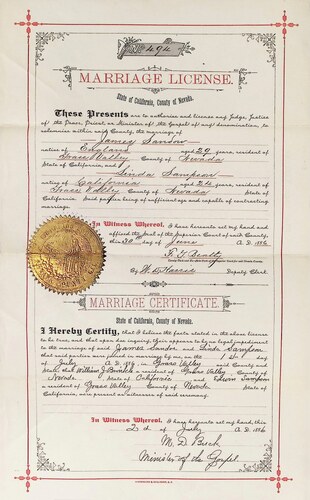 494
MARRIAGE LICENSE.
State of California, County of Nevada.
These Presents are to authorize and license any Judge, Justice
of the Peace, Priest, or Minister of the Gospel of any denomination, to
solemnize within said County, the marriage of
James Sandow
native of England aged 29 years, resident of
Grass Valley County of Nevada
State of California, and
Linda Sampson
native of California aged 24 years, resident of
Grass Valley County of Nevada State of
California. Said parties being of sufficient age and capable of contracting
marriage.
In Witness Whereof, I have hereunto set my hand and
affixed the Seal of the Superior Court of said County,
this 30 day of June A. D. 1896
By Deputy Clerk.
MARRIAGE CERTIFICATE.
State of California, County of Nevada.
I Hereby Certify, that I believe the facts stated in the above license
to be true, and that upon due inquiry, there appears to be no legal impediment
to the marriage of said James Sandow and Linda Sampson
that said parties were joined in marriage by me, on the 1st
July A.D. 1896, in Grass Valley County and
State; that William J. a resident of Grass Valley County of
Nevada State of California and Edwin Sampson
a resident of Grass Valley County of Nevada State of
California, were present as witnesses of said ceremony.
In Witness Whereof, I have hereunto set my hand, this
2nd day of July A. D. 1896
M. D. Buck
Minister of the Gospel.